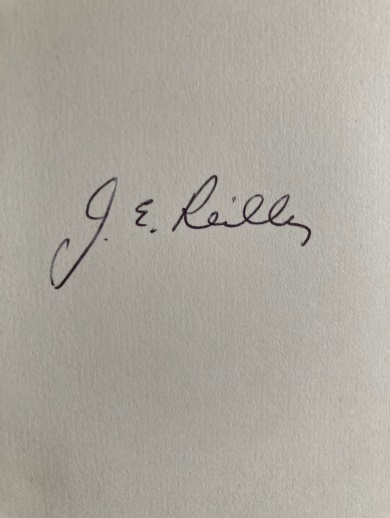 J. E. Reilly